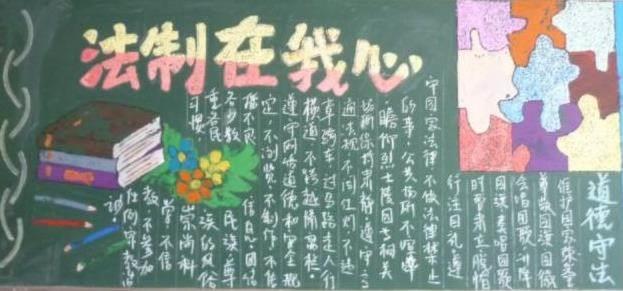 法制在我心
道德守法
维护国家荣誉
尊敬国旗国徽
会唱国歌升降
国旗奏唱国歌
时肃立脱帽
行注目礼遵
守国家法律不做法律禁止
的事公共场所不喧哗
瞻仰烈士陵园等相关
场所保持肃静遵守交
通法规不闯红灯不违
章骑车过马路走人行
横道不跨越隔离栏
遵守网络道德和安全规
定不浏览不制作不传
播不良信息团结
各少数民族尊
重各民族的风俗
习惯崇尚科
学不信
教不参加
任何宗教活